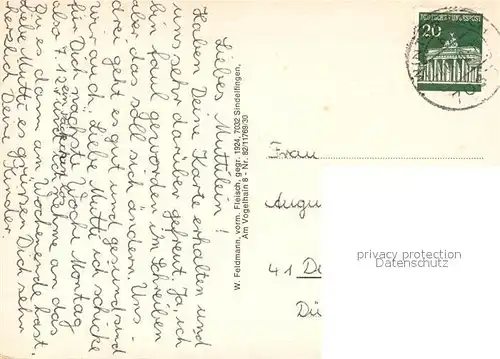 Liebes Muttilein!
Haben Deine Karte erhalten und
uns sehr darüber gefreut. Ja, ich
bin faul geworden im Schreiben
aber das soll sich ändern. Uns
drei geht es gut und gesund sind
wir auch. Liebe Mutti ich schicke
für Dich nächste Woche Montag
also 7.12. eine an das
Du es dann am Wochenende hast.
Liebe Mutti es grüssen Dich sehr
herzlich Deine Kinder.
W. Feldmann, vorm. Fleisch, gegr. 1924, 7032 Sindelfingen,
Am Vogelhain 8 - Nr. 82/11769/30
DEUTSCHE BUNDESPOST
20
Frau
Augu
41 De
Dü
privacy protection
akpool.de